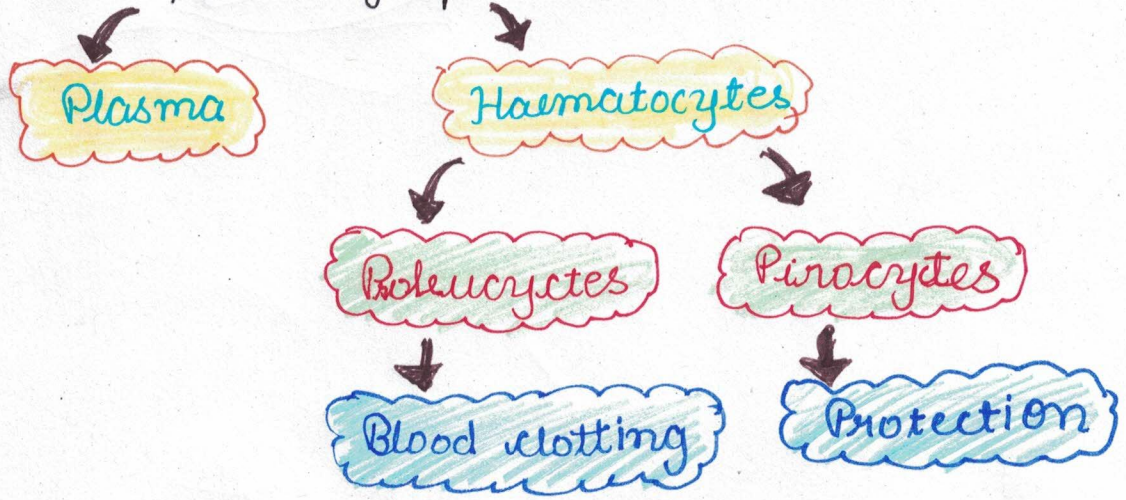 Plasma
Haematocytes
Proleucyctes
Pirocyctes
Blood clotting
Protection